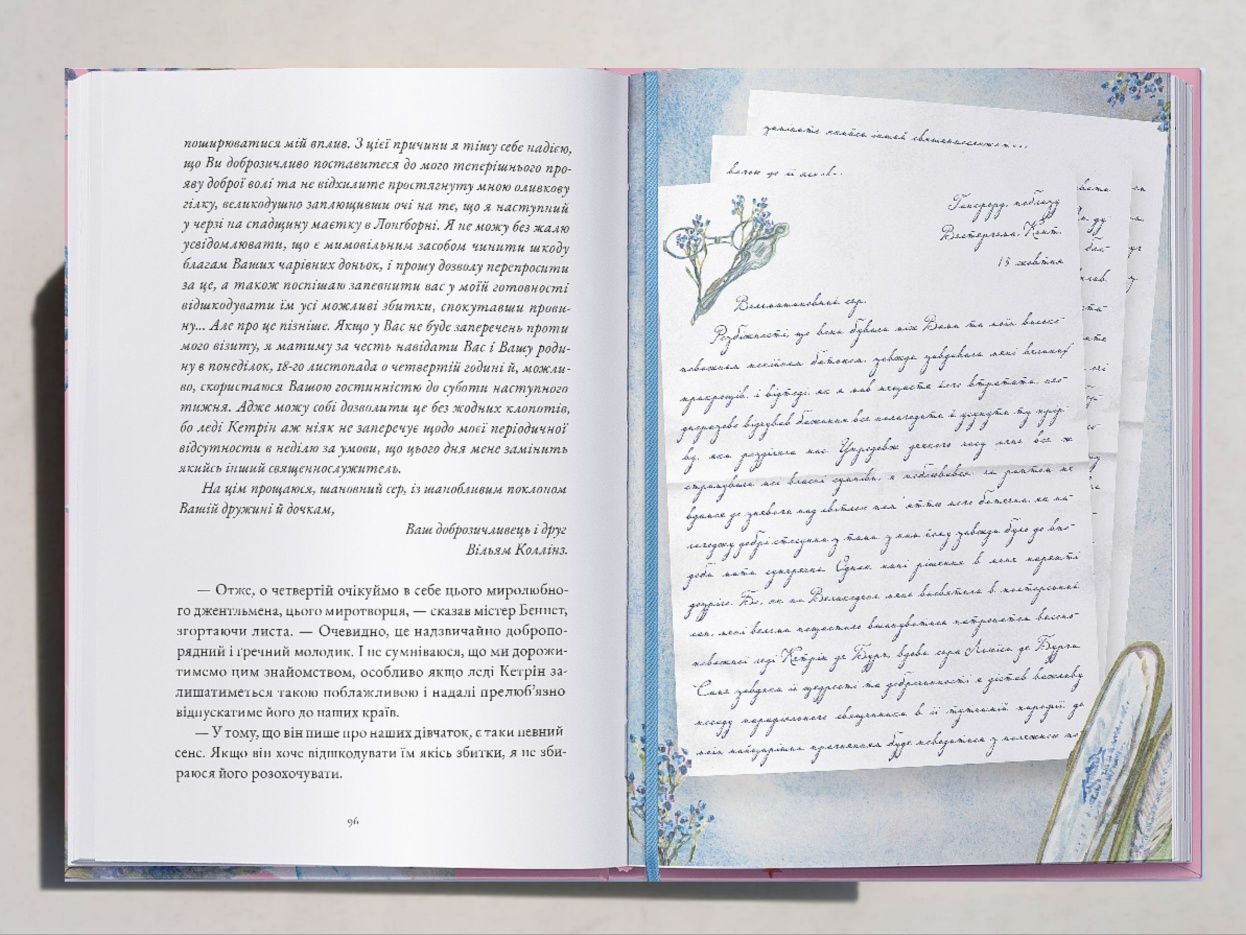 поширюватися мій вплив. З цієї причини я тішу себе надією,
що Ви доброзичливо поставитеся до мого теперішнього про-
яву доброї волі та не відхилите простягнуту мною оливкову
гілку, великодушно заплющивши очі на те, що я наступний
у черзі на спадщину маєтку в Лонґборні. Я не можу без жалю
усвідомлювати, що є мимовільним засобом чинити шкоду
благам Ваших чарівних доньок, і прошу дозволу перепросити
за це, а також поспішаю запевнити вас у моїй готовності
відшкодувати їм усі можливі збитки, спокутавши прови-
ну... Але про це пізніше. Якщо у Вас не буде заперечень проти
мого візиту, я матиму за честь навідати Вас і Вашу роди-
ну в понеділок, 18-го листопада о четвертій годині й, можли-
во, скористаюся Вашою гостинністю до суботи наступного
тижня. Адже можу собі дозволити це без жодних клопотів,
бо леді Кетрін аж ніяк не заперечує щодо моєї періодичної
відсутности в неділю за умови, що цього дня мене замінить
якийсь інший священнослужитель.
На цім прощаюся, шановний сер, із шанобливим поклоном
Вашій дружині й дочкам,
Ваш доброзичливець і друг
Вільям Коллінз.
— Отже, о четвертій очікуймо в себе цього миролюбно-
го джентльмена, цього миротворця, — сказав містер Беннет,
згортаючи листа. — Очевидно, це надзвичайно добропо-
рядний і ґречний молодик. І не сумніваюся, що ми дорожи-
тимемо цим знайомством, особливо якщо леді Кетрін за-
лишатиметься такою поблажливою і надалі прелюб’язно
відпускатиме його до наших країв.
— У тому, що він пише про наших дівчаток, є таки певний
сенс. Якщо він хоче відшкодувати їм якісь збитки, я не зби-
раюся його розохочувати.
96
Гансфорд, поблизу
Вестергема, Кент.
15 жовтня
Вельмишановний сер,
Розбіжності, що вони бували між Вами та моїм високо-
поважним покійним батьком, завжди завдавали мені великих
прикрощів, і відтоді, як я мав нещастя його втратити, не
одноразово відчував бажання все полагодити й усунути ту прір-
ву, що розділяла нас. Упродовж деякого часу мене все ж
стримували мої власні сумніви, я побоювався, чи раптом не
вдамся до зневаги над світлою пам'яттю мого батечка, як на-
лагоджу добрі стосунки з тими, з ким йому завжди було до впо-
доби мати суперечки. Однак нині рішення в моїй
дозріло. Бо, як на Великдень мене висвятили в пасторський
сан, мені вельми пощастило вшануватися патронатом високо-
поважної леді Кетрін де Бург, вдови сера Люїса де Бурга
Саме завдяки її щедрості та доброчинності я дістав важливу
посаду парафіяльного священника в її тутешній парафії, де
моїм найщирішим прагненням буде поводитися з належною по